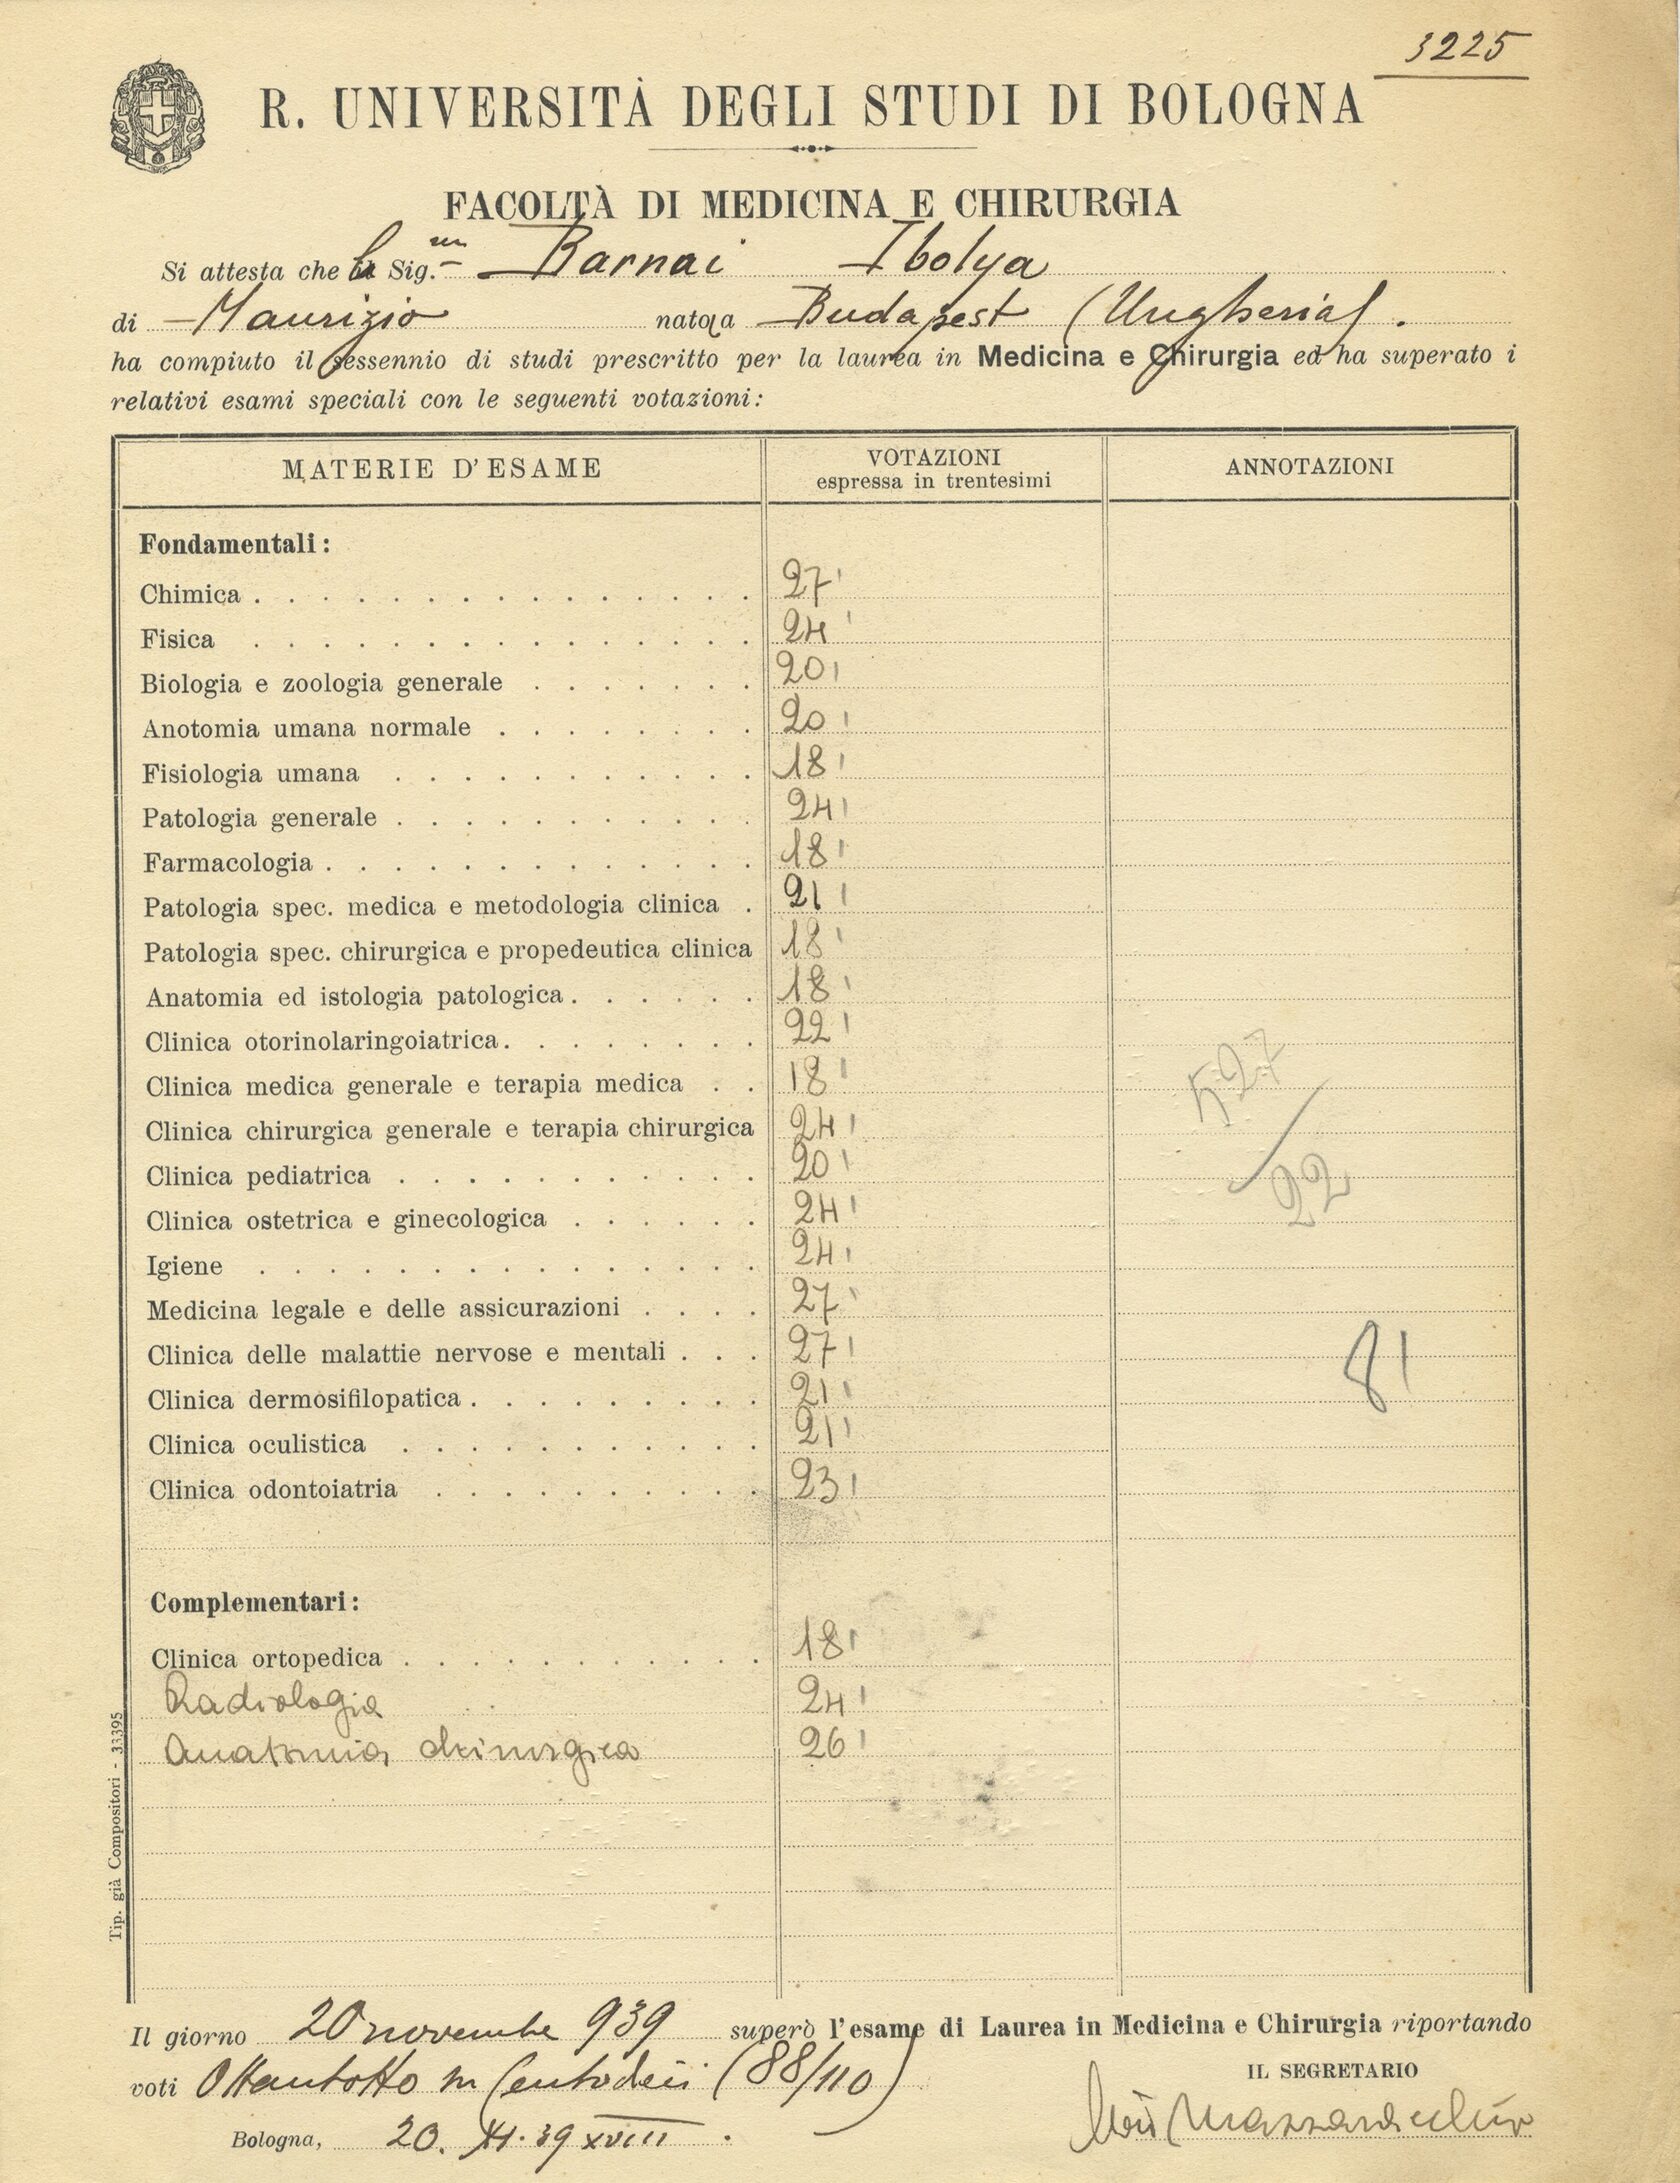 3225
R. UNIVERSITÀ DEGLI STUDI DI BOLOGNA
FACOLTÀ DI MEDICINA E CHIRURGIA
Si attesta che la Sig.na Barnai Ibolya
di Maurizio nato a Budapest (Ungheria).
ha compiuto il sessennio di studi prescritto per la laurea in Medicina e Chirurgia ed ha superato i
relativi esami speciali con le seguenti votazioni:
MATERIE D'ESAME VOTAZIONI espressa in trentesimi ANNOTAZIONI
Fondamentali:
Chimica 27
Fisica 24
Biologia e zoologia generale 20
Anotomia umana normale 20
Fisiologia umana 18
Patologia generale 24
Farmacologia 18
Patologia spec. medica e metodologia clinica 21
Patologia spec. chirurgica e propedeutica clinica 18
Anatomia ed istologia patologica 18
Clinica otorinolaringoiatrica 22
Clinica medica generale e terapia medica 18 527
Clinica chirurgica generale e terapia chirurgica 24
Clinica pediatrica 20 / 22
Clinica ostetrica e ginecologica 24
Igiene 24
Medicina legale e delle assicurazioni 27
Clinica delle malattie nervose e mentali 27 81
Clinica dermosifilopatica 21
Clinica oculistica 21
Clinica odontoiatria 23
Complementari:
Clinica ortopedica 18
Radiologia 24
Anatomia chirurgica 26
Tip. già Compositori - 33395
Il giorno 20 novembre 939 superò l'esame di Laurea in Medicina e Chirurgia riportando
voti Ottantotto su Centodieci (88/110)
IL SEGRETARIO
Bologna, 20. XI. 39 XVIII.